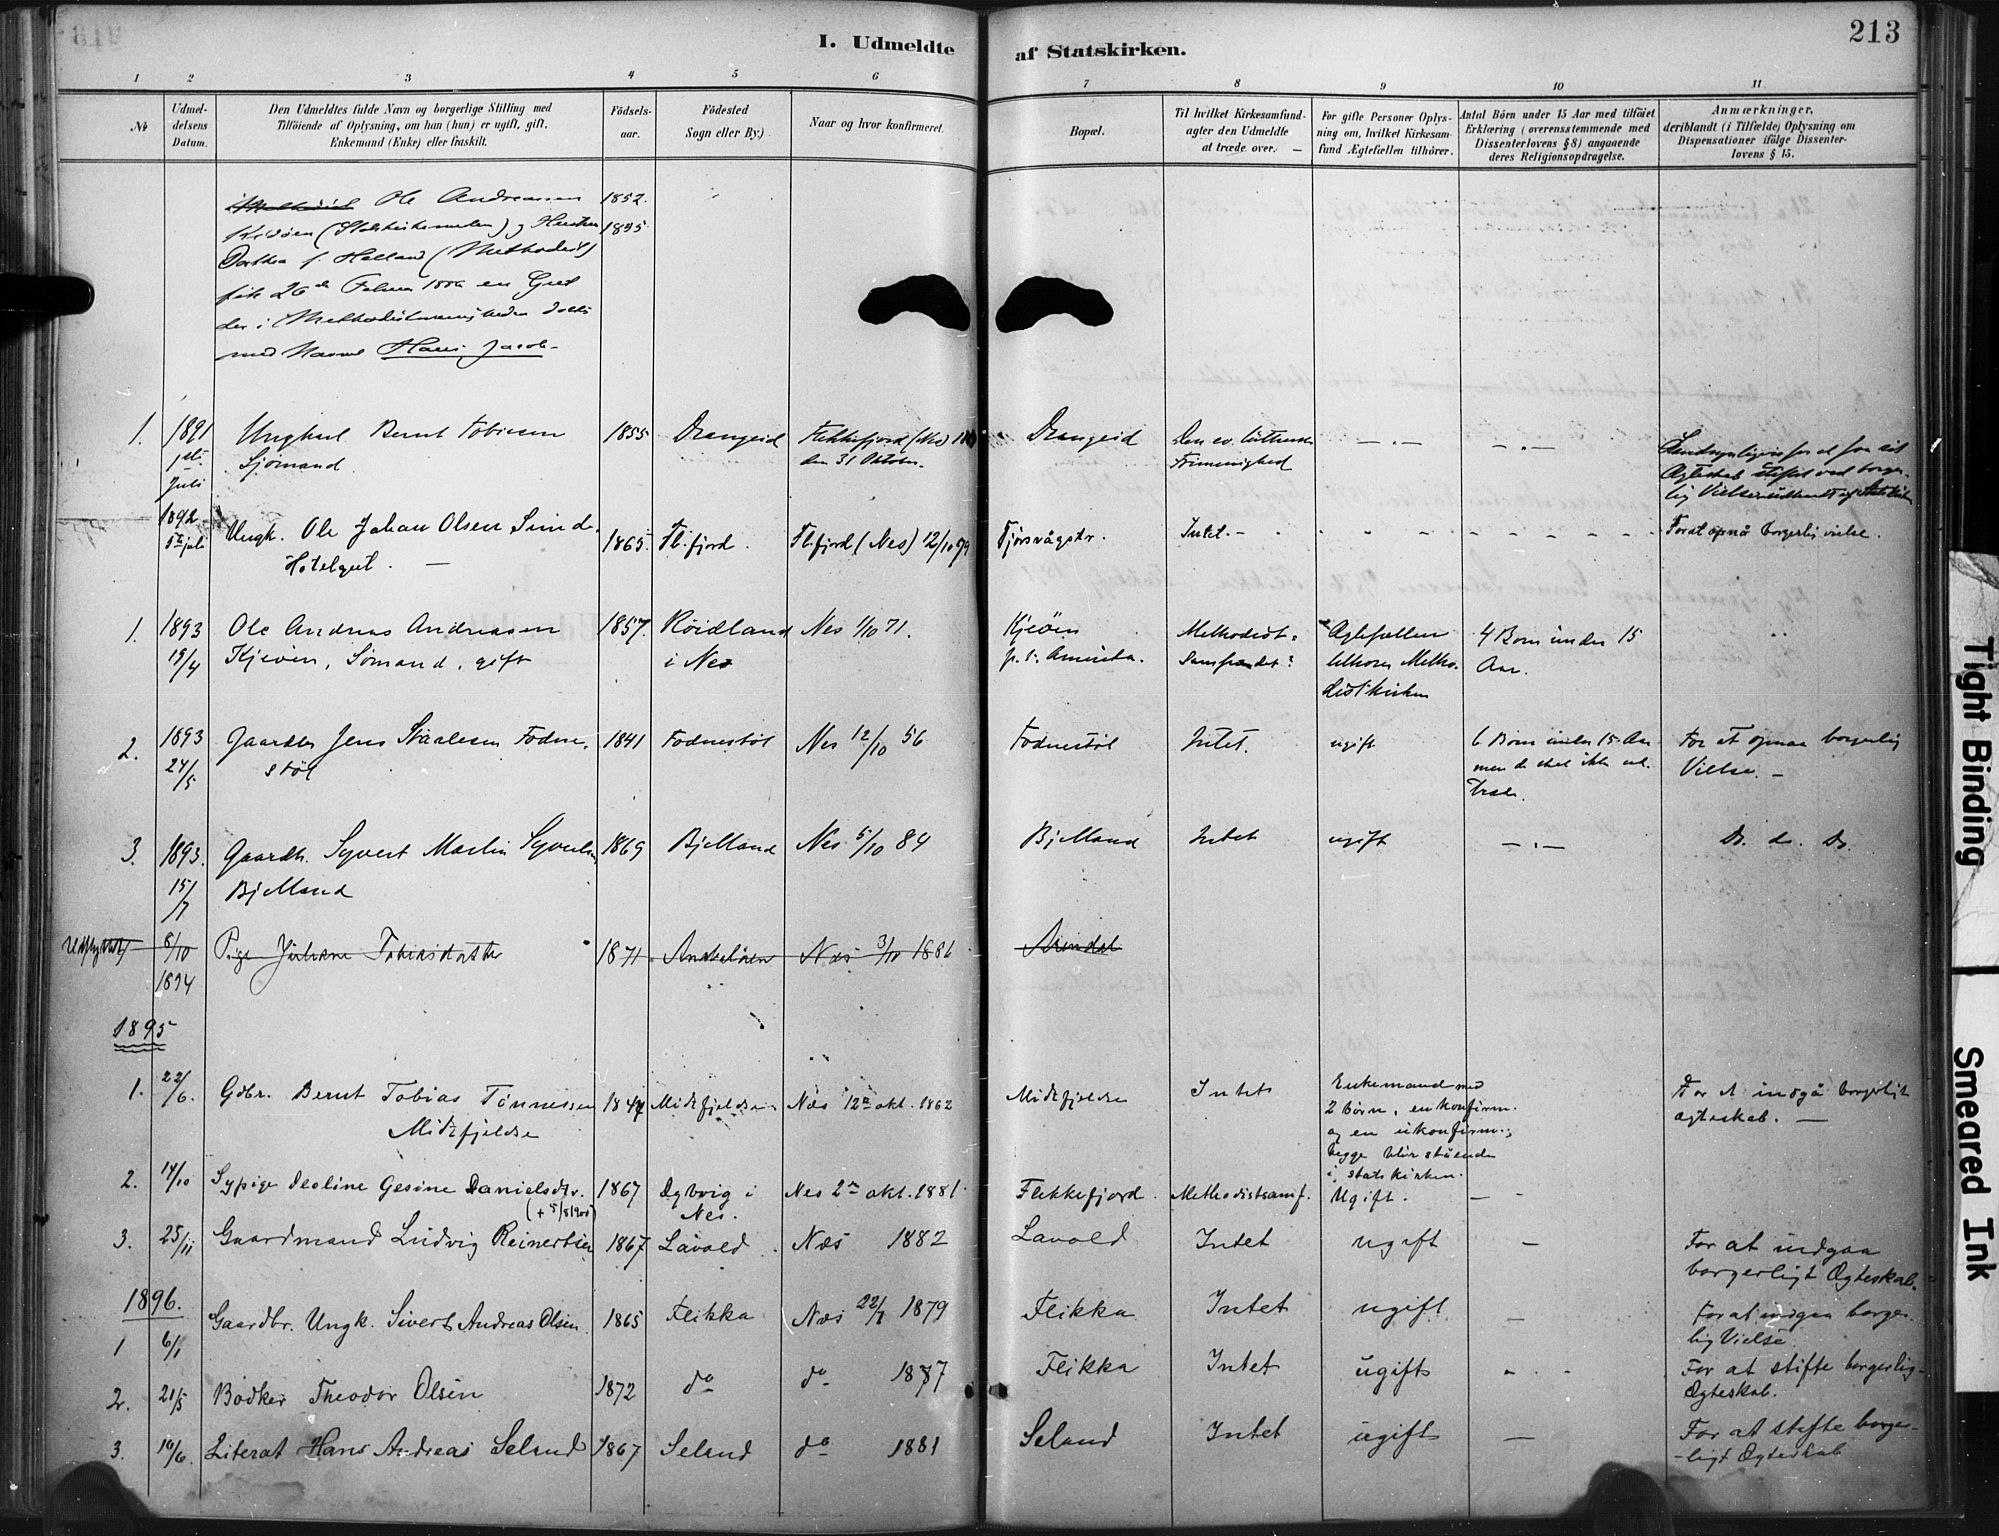 213
I. Udmeldte af Statskirken.
1 2 3 4 5 6 7 8 9 10 11
№
Udmeldelsens Datum.
Den Udmeldtes fulde Navn og borgerlige Stilling med
Tilföiende af Oplysning, om han (hun) er ugift, gift,
Enkemand (Enke) eller fraskilt.
Födselsaar.
Födested
Sogn eller By.)
Naar og hvor konfirmeret.
Bopæl.
Til hvilket Kirkesamfund-
agter den Udmeldte
at træde over. —
For gifte Personer Oplys-
ning om, hvilket Kirkesam-
fund Ægtefællen tilhörer.
Antal Börn under 15 Aar med tilföiet
Erklæring (overensstemmende med
Dissenterlovens § 8) angaaende
deres Religionsopdragelse.
Anmærkninger,
deriblandt (i Tilfælde) Oplysning om
Dispensationer ifölge Dissenter-
lovens § 15.
Ole Andreassen 1852.
og Hustru
Dorthea f. Helland (Methodist)
med Navne Hans Jacob
1. 1891 Ungkarl Bernt Tobiesen 1855 Drangeid Flekkefjord (Nes) Drangeid Den ev. luthersk — . — — . —
Sjömand. den 31 Oktober. Frimenighed
Juli
1892 Ungk. Ole Johan Olsen Sunde 1865. Fl.fjord. Fl.fjord (Nes) 12/10 79 Tjörsvågstr. Intet. - For at opnå borgerlig vielse.
juli
1. 1893 Ole Andreas Andreasen 1857. Röidland Nes 1/10 71. Kjeöen Methodist- Ægtefællen 4 Born under 15
19/4 Kjeöen, Sømand, gift i Nes p. t. Amerika. Samfundet? tilhører Metho- Aar.
distkirken
2. 1893 Gaardbr. Jens Staalesen Fodne- 1841 Fodnestöl Nes 12/10 56 Fodnestöl Intet. ugift 6 Born under 15 Aar For at opnaa borgerlig
24/5 stöl men de skal ikke ud- Vielse. -
træde.
3. 1893. Gaardb. Syvert Martin Syvertsen 1869 Bjelland Nes 5/10 84 Bjelland Intet ugift — . — Do. do. Do.
15/7 Bjelland
8/10 Pige Juliane Tobiasdatter 1871 Nes 3/10 1886 Arendal
1894
1895
1. 22/6. Gdbr. Bernt Tobias Tönnessen 1847 Midtfjeldse Næs 12te okt. 1862 Midtfjeldse Intet Enkemand med For at indgå borgerligt
Midtfjeldse 2 börn, en konfirm. ægteskab. —
og en ukonfirm.;
begge blir stående
i statskirken.
2. 14/10 Sypige Seoline Gesine Danielsdtr. 1867 Nes 2den okt. 1881. Flekkefjord. Methodistsamf. Ugift. — —
Nes.
3. 25/11 Gaardmand Ludvig Reinertsen 1867 Lavold Næs 1882 Lavold Intet ugift — For at indgaa
borgerligt Ægteskab.
1896.
Gaardbr. Ungk. Sivert Andreas Olsen. 1865 Flikka Næs 1879 Flikka Intet ugift — For at indgaa borger-
1 6/1 lig Vielse
2. 21/5 Bödker Theodor Olsen 1872 do do 1887 Flikka Intet ugift For at stifte borgerlig
Ægteskab.
3. 10/6. Literat Hans Andreas Seland 1867 Seland do 1881 Seland Intet ugift — For at stefte borger-
-ligt Ægteskab
Tight Binding
Smeared Ink